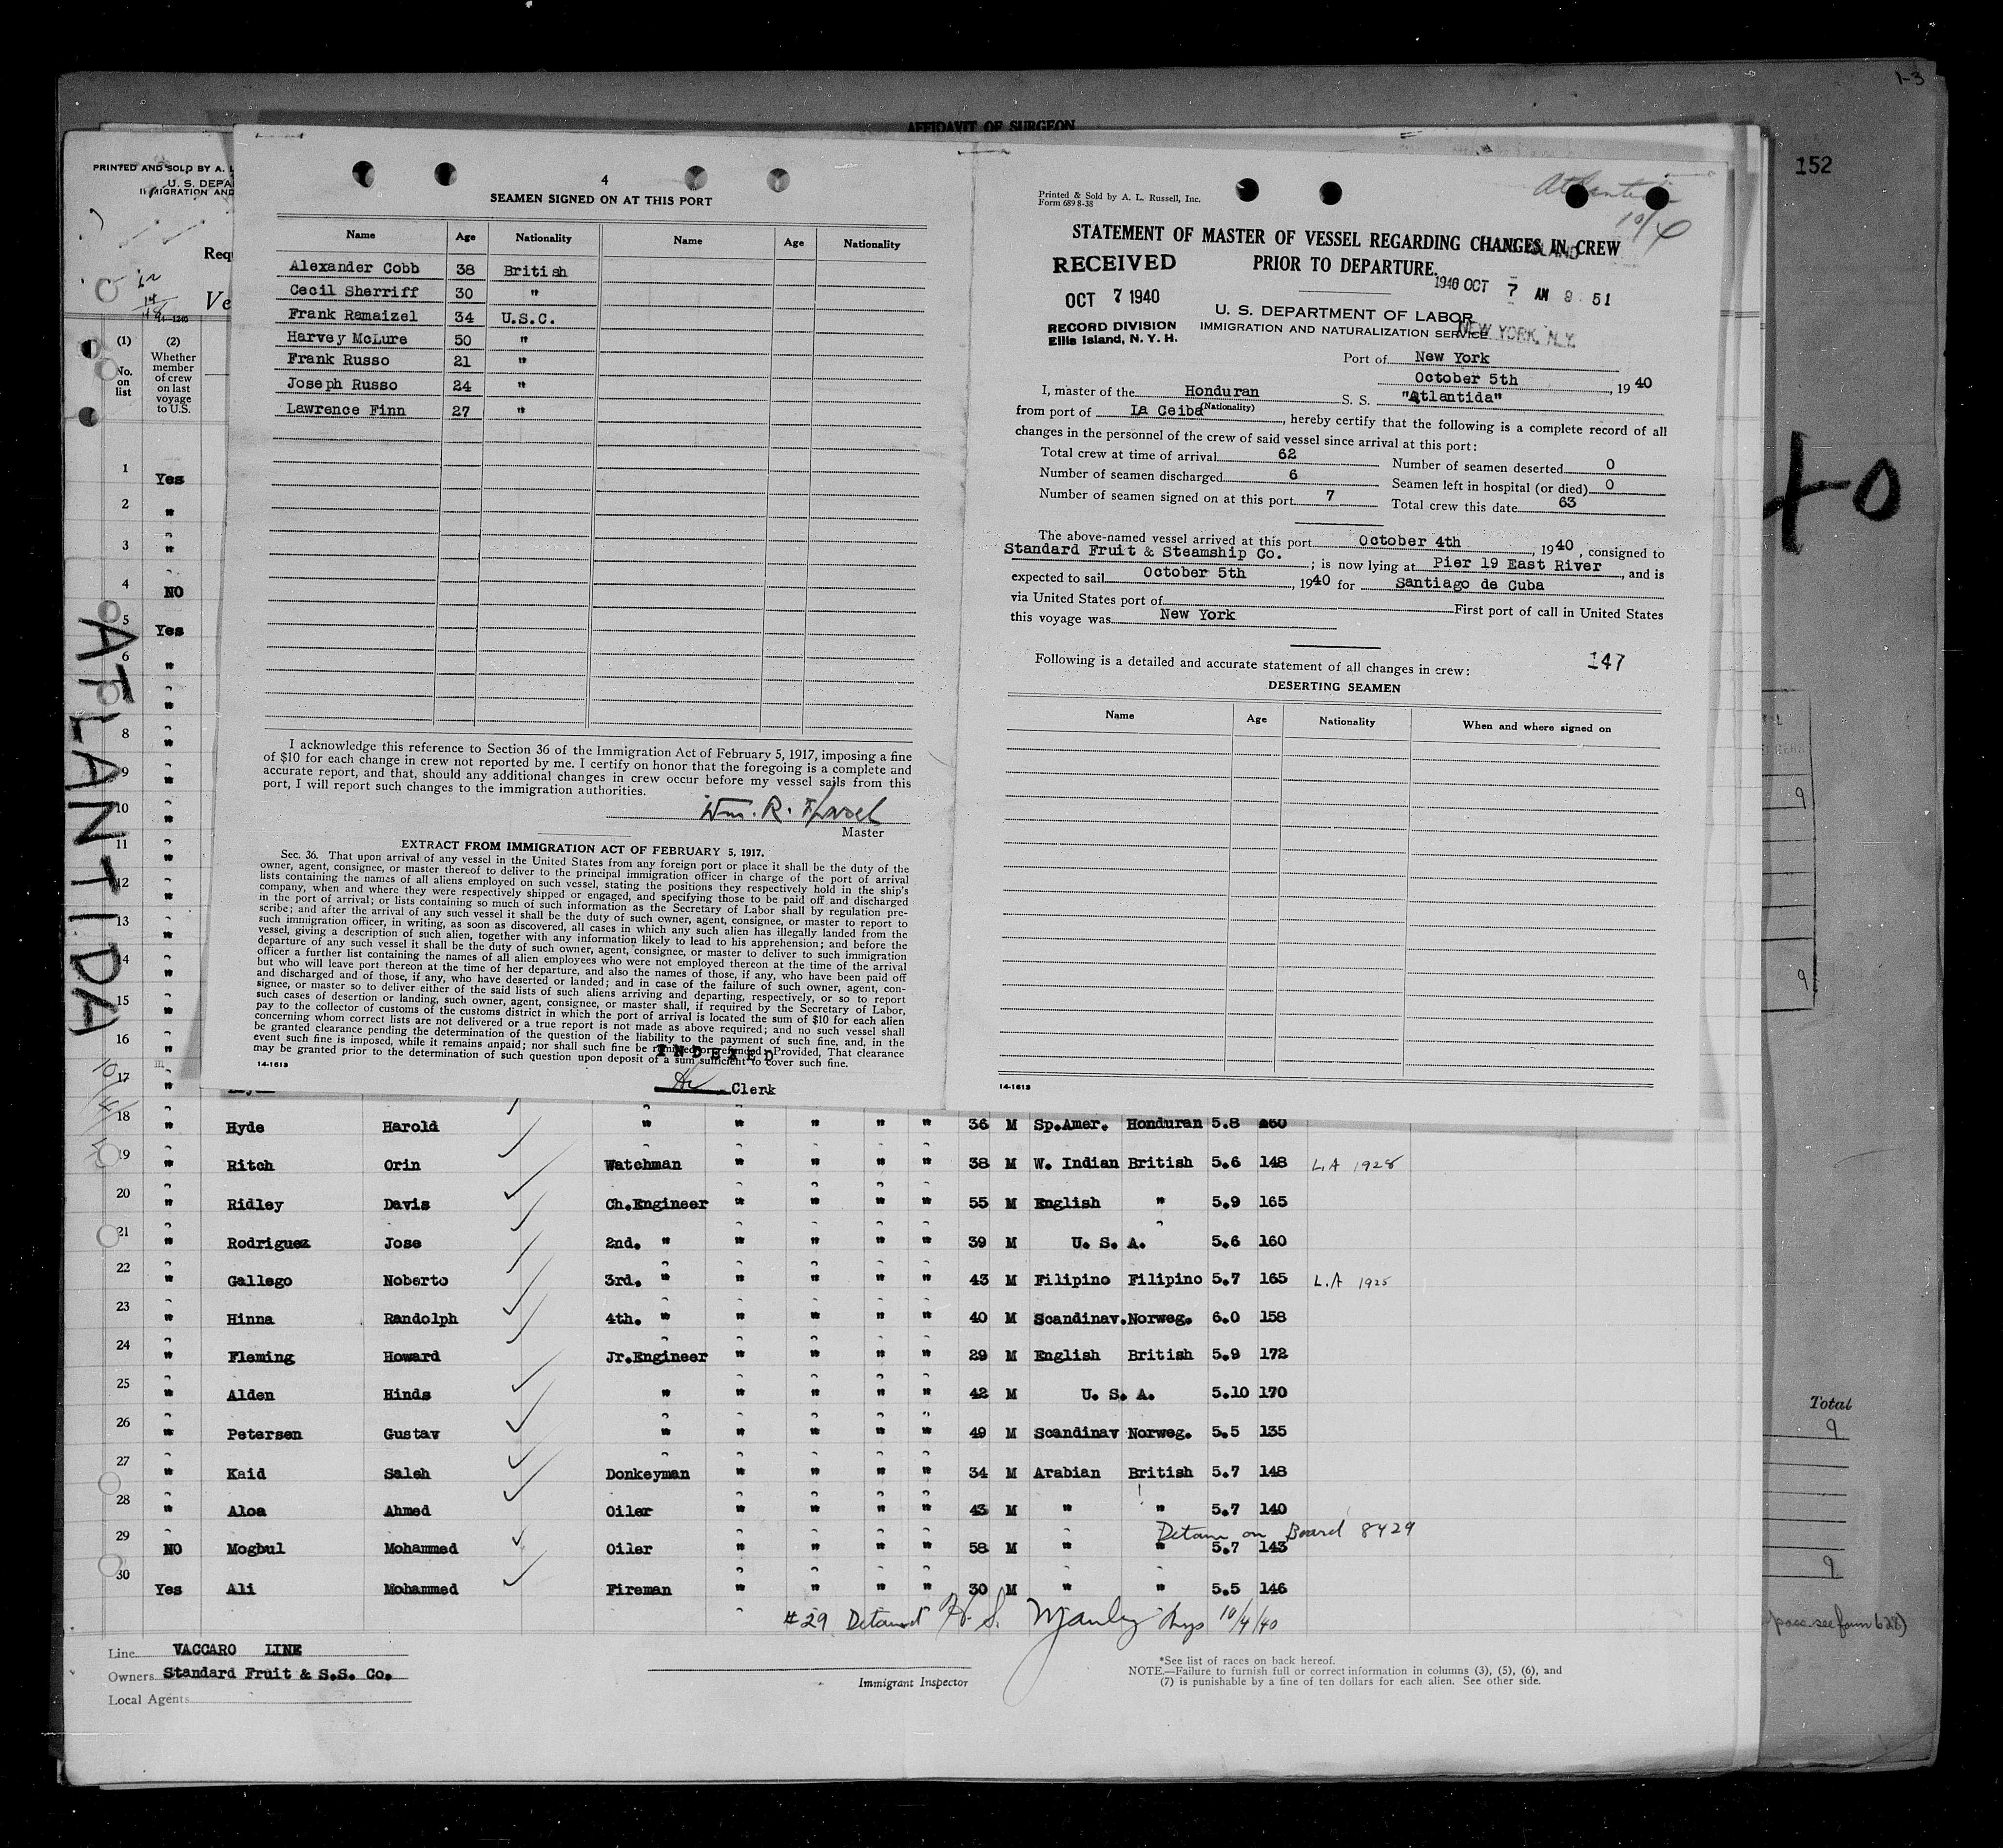 1-3
AFFIDAVIT OF SURGEON
152
PRINTED AND SOLD BY A. L
U. S. DEPA
IMMIGRATION AND
Requ
Ve
(1)
No.
on
list
(2)
Whether
member
of crew
on last
voyage
to U.S.
1 Yes
2 "
3 "
4 NO
5 Yes
6 "
"
8 "
9 "
10 "
11 "
12 "
13 "
14 "
15 "
16 "
17 "
ATLANTIDA
4
SEAMEN SIGNED ON AT THIS PORT
Name Age Nationality Name Age Nationality
Alexander Cobb 38 British
Cecil Sherriff 30 "
Frank Ramaizel 34 U.S.C.
Harvey McLure 50 "
Frank Russo 21 "
Joseph Russo 24 "
Lawrence Finn 27 "
I acknowledge this reference to Section 36 of the Immigration Act of February 5, 1917, imposing a fine
of $10 for each change in crew not reported by me. I certify on honor that the foregoing is a complete and
accurate report, and that, should any additional changes in crew occur before my vessel sails from this
port, I will report such changes to the immigration authorities.
Wm. R.
Master
EXTRACT FROM IMMIGRATION ACT OF FEBRUARY 5, 1917.
Sec. 36. That upon arrival of any vessel in the United States from any foreign port or place it shall be the duty of the
owner, agent, consignee, or master thereof to deliver to the principal immigration officer in charge of the port of arrival
lists containing the names of all aliens employed on such vessel, stating the positions they respectively hold in the ship's
company, when and where they were respectively shipped or engaged, and specifying those to be paid off and discharged
in the port of arrival; or lists containing so much of such information as the Secretary of Labor shall by regulation pre-
scribe; and after the arrival of any such vessel it shall be the duty of such owner, agent, consignee, or master to report to
such immigration officer, in writing, as soon as discovered, all cases in which any such alien has illegally landed from the
vessel, giving a description of such alien, together with any information likely to lead to his apprehension; and before the
departure of any such vessel it shall be the duty of such owner, agent, consignee, or master to deliver to such immigration
officer a further list containing the names of all alien employees who were not employed thereon at the time of the arrival
but who will leave port thereon at the time of her departure, and also the names of those, if any, who have been paid off
and discharged and of those, if any, who have deserted or landed; and in case of the failure of such owner, agent, con-
signee, or master so to deliver either of the said lists of such aliens arriving and departing, respectively, or so to report
such cases of desertion or landing, such owner, agent, consignee, or master shall, if required by the Secretary of Labor,
pay to the collector of customs of the customs district in which the port of arrival is located the sum of $10 for each alien
concerning whom correct lists are not delivered or a true report is not made as above required; and no such vessel shall
be granted clearance pending the determination of the question of the liability to the payment of such fine, and, in the
event such fine is imposed, while it remains unpaid; nor shall such fine be remitted or refunded: Provided, That clearance
may be granted prior to the determination of such question upon deposit of a sum sufficient to cover such fine.
14-1613
INDEXED
Clerk
Printed & Sold by A. L. Russell, Inc.
Form 689 8-38
Atlantida
10/6
STATEMENT OF MASTER OF VESSEL REGARDING CHANGES IN CREW
PRIOR TO DEPARTURE.
RECEIVED
OCT 7 1940
RECORD DIVISION
Ellis Island, N. Y. H.
1940 OCT 7 AM 8 51
NEW YORK, N.Y.
U. S. DEPARTMENT OF LABOR
IMMIGRATION AND NATURALIZATION SERVICE
Port of New York
October 5th, 1940
I, master of the Honduran S. S. "Atlantida"
(Nationality)
from port of La Ceiba, hereby certify that the following is a complete record of all
changes in the personnel of the crew of said vessel since arrival at this port:
Total crew at time of arrival 62 Number of seamen deserted 0
Number of seamen discharged 6 Seamen left in hospital (or died) 0
Number of seamen signed on at this port 7 Total crew this date 63
The above-named vessel arrived at this port October 4th, 1940, consigned to
Standard Fruit & Steamship Co.; is now lying at Pier 19 East River, and is
expected to sail October 5th, 1940 for Santiago de Cuba
via United States port of First port of call in United States
this voyage was New York
Following is a detailed and accurate statement of all changes in crew: 147
DESERTING SEAMEN
Name Age Nationality When and where signed on
14-1613
18 " Hyde Harold " " " " " 36 M Sp.Amer. Honduran 5.8 160
19 " Ritch Orin Watchman " " " " 38 M W. Indian British 5.6 148 L.A 1928
20 " Ridley Davis Ch.Engineer " " " " 55 M English " 5.9 165
21 " Rodriguez Jose 2nd. " " " " " 39 M U. S. A. 5.6 160
22 " Gallego Noberto 3rd. " " " " " 43 M Filipino Filipino 5.7 165 L.A 1925
23 " Hinna Randolph 4th. " " " " " 40 M Scandinav. Norweg. 6.0 158
24 " Fleming Howard Jr.Engineer " " " " 29 M English British 5.9 172
25 " Alden Hinds " " " " " 42 M U. S. A. 5.10 170
26 " Petersen Gustav " " " " " 49 M Scandinav Norweg. 5.5 135
27 " Kaid Saleh Donkeyman " " " " 34 M Arabian British 5.7 148
28 " Aloa Ahmed Oiler " " " " 43 M " " 5.7 140
Detain on Board 8429
29 NO Mogbul Mohammed Oiler " " " " 58 M " " 5.7 143
30 Yes Ali Mohammed Fireman " " " " 30 M " " 5.5 146
#29 Detained H. S. Manly Insp 10/4/40
Line VACCARO LINE
Owners Standard Fruit & S.S. Co.
Local Agents
Immigrant Inspector
*See list of races on back hereof.
NOTE.—Failure to furnish full or correct information in columns (3), (5), (6), and
(7) is punishable by a fine of ten dollars for each alien. See other side.
9
9
Total
9
9
see form 628)